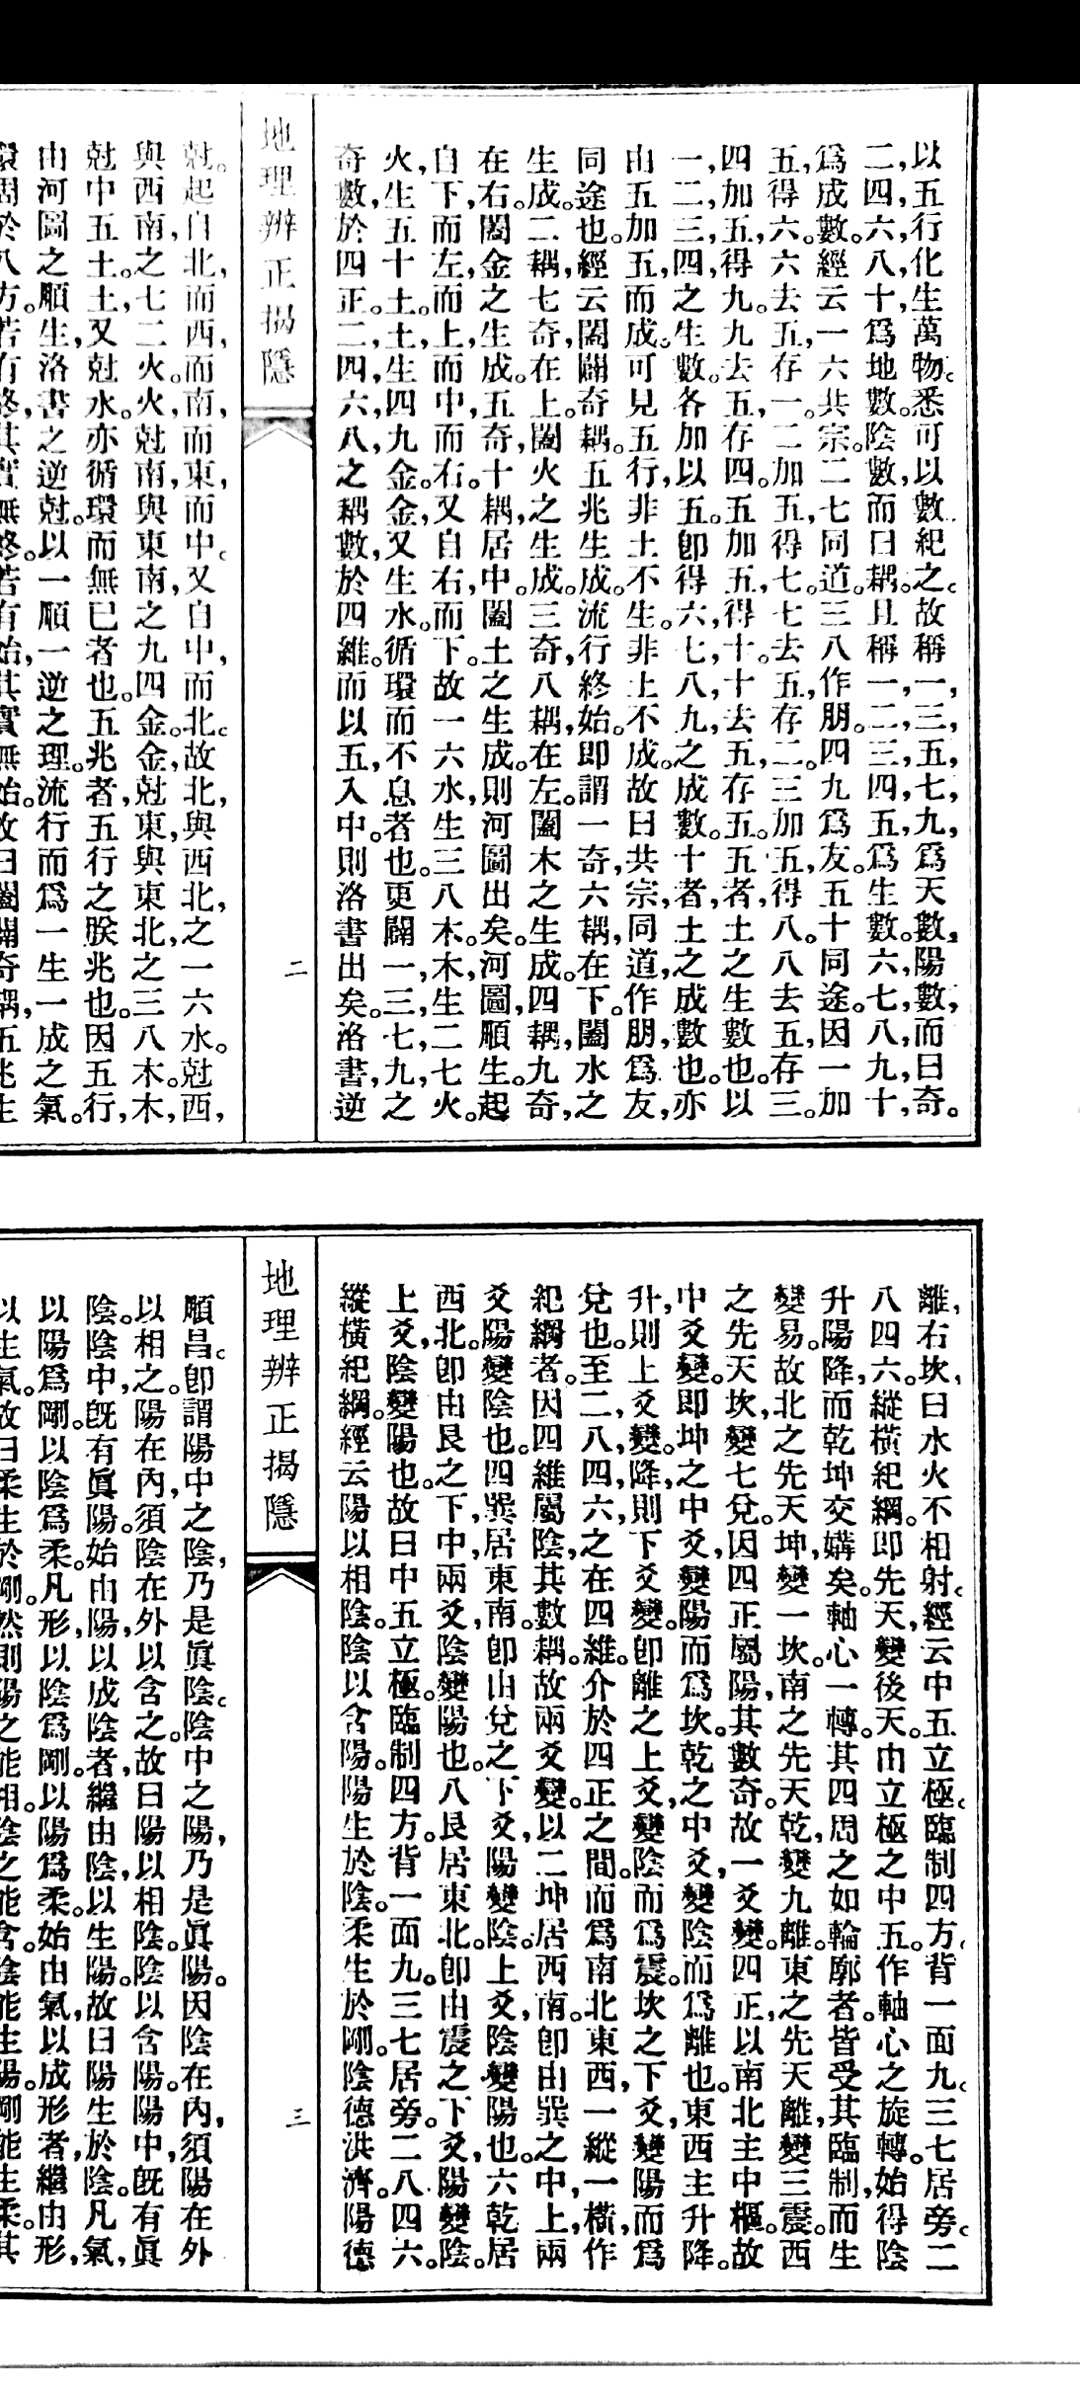 以五行化生萬物。悉可以數紀之。故稱一,三,五,七,九,爲天數,陽數,而曰奇。
二,四,六,八,十,爲地數。陰數,而曰耦。且稱一,二,三,四,五,爲生數。六,七,八,九,十,
爲成數。經云一六共宗。二七同道。三八作朋。四九爲友。五十同途。因一加
五,得六。六去五,存一。二加五,得七。七去五,存二。三加五,得八。八去五,存三。
四加五,得九。九去五,存四。五加五,得十。十去五,存五。五者,土之生數也。以
一,二,三,四,之生數。各加以五。卽得六,七,八,九,之成數。十者,土之成數也。亦
由五加五,而成。可見五行,非土不生。非土不成。故曰共宗,同道,作朋,爲友,
同途也。經云闔闢奇耦。五兆生成。流行終始。即謂一奇,六耦,在下。闔水之
生成。二耦,七奇,在上。闔火之生成。三奇,八耦,在左。闔木之生成。四耦,九奇,
在右。闔金之生成。五奇,十耦,居中。闔土之生成。則河圖出矣。河圖,順生。起
自下,而左,而上,而中,而右。又自右,而下。故一六水,生三八木。木,生二七火。
火,生五十土。土,生四九金。金,又生水。循環而不息者也。更闢一,三,七,九,之
奇數,於四正。二,四,六,八,之耦數,於四維。而以五,入中。則洛書出矣。洛書,逆
地理辨正揭隱
二
尅。起自北,而西,而南,而東,而中。又自中,而北。故北,與西北,之一六水。尅西,
與西南,之七二火。火,尅南,與東南,之九四金。金,尅東,與東北,之三八木。木,
尅中五土。土,又尅水。亦循環而無已者也。五兆者,五行之朕兆也。因五行,
由河圖之順生,洛書之逆尅。以一順一逆之理。流行而爲一生一成之氣。
離,右坎,曰水火不相射。經云中五立極。臨制四方。背一面九。三七居旁。二
八四六。縱橫紀綱。即先天,變後天。由立極之中五。作軸心之旋轉。始得陰
升陽降,而乾坤交媾矣。軸心一轉。其四周之如輪廓者。皆受其臨制,而生
變易。故北之先天坤,變一坎。南之先天乾,變九離。東之先天離,變三震。西
之先天坎,變七兌。因四正屬陽,其數奇。故一爻變。四正,以南北主中樞。故
中爻變。即坤之中爻,變陽而爲坎。乾之中爻,變陰而爲離也。東西主升降。
升,則上爻變。降,則下爻變。卽離之上爻,變陰而爲震。坎之下爻,變陽而爲
兌也。至二,八,四,六,之在四維。介於四正之間。而爲南北東西,一縱一橫,作
紀綱者。因四維屬陰,其數耦。故兩爻變。以二坤居西南。卽由巽之中,上,兩
爻,陽變陰也。四巽居東南。卽由兌之下爻,陽變陰。上爻,陰變陽也。六乾居
西北。卽由艮之下,中,兩爻,陰變陽也。八艮居東北。卽由震之下爻,陽變陰。
上爻,陰變陽也。故曰中五立極。臨制四方。背一面九。三七居旁。二八四六。
縱橫紀綱。經云陽以相陰。陰以含陽。陽生於陰。柔生於剛。陰德洪濟。陽德
地理辨正揭隱
三
順昌。卽謂陽中之陰,乃是眞陰。陰中之陽,乃是眞陽。因陰在內,須陽在外
以相之。陽在內,須陰在外以含之。故曰陽以相陰。陰以含陽。陽中,旣有眞
陰。陰中,旣有眞陽。始由陽,以成陰者,繼由陰,以生陽。故曰陽生於陰。凡氣,
以陽爲剛。以陰爲柔。凡形,以陰爲剛。以陽爲柔。始由氣,以成形者,繼由形,
以生氣。故曰柔生於剛。然則陽之能相。陰之能含。陰能生陽。剛能生柔。其